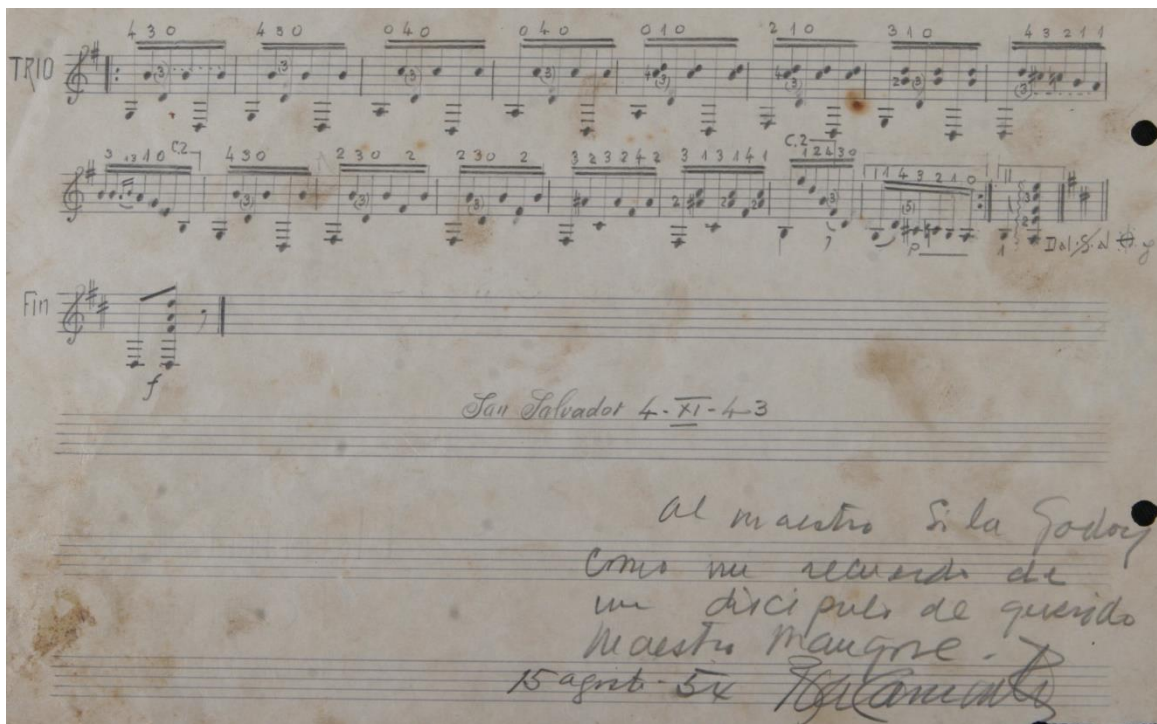 TRIO
4 3 0 4 3 0 0 4 0 0 4 0 0 1 0 2 1 0 3 1 0 4 3 2 1 1
C.2
C.2
4 3 0 2 3 0 2 2 3 0 2 3 2 3 2 4 2 3 1 3 1 4 1 1 2 4 3 0 1 1 4 3 2 1 0 11
p
Dal S. al y
Fin
f
San Salvador 4-XI-43
Al maestro Sila Godoy
como un recuerdo de
un discipulo de querido
maestro Mangore.
15 agosto - 54